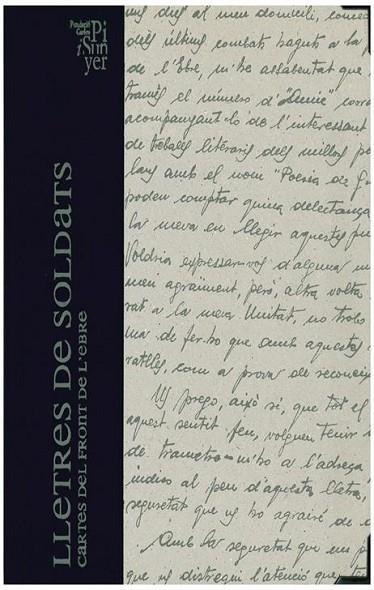 Fundació
Carles Pi
i Sunyer
LLETRES DE SOLDATS
CARTES DEL FRONT DE L'EBRE
dies al meu domicili,
dels últims combats haguts a la
de l'Ebre, m'he assabentat que
tramés el número d'"Amic"
acompanyant-lo de l'interessant
de treballs literaris dels millors
lans amb el nom "Poesia de
poden comptar quina delectança
la meva en llegir aquestes
Voldria expressar-vos d'alguna
meu agraïment, però, altra volta
rat a la meva Unitat, no trobo
na de fer-ho que amb aquestes
ratlles, com a prova de
Us prego, això sí, que tot el
aquest sentit feu, volgueu tenir
de trametre-m'ho a l'adreça
indico al peu d'aquesta lletra,
seguretat que us ho agrairé de
Amb la seguretat que em
que us distregui l'atenció que